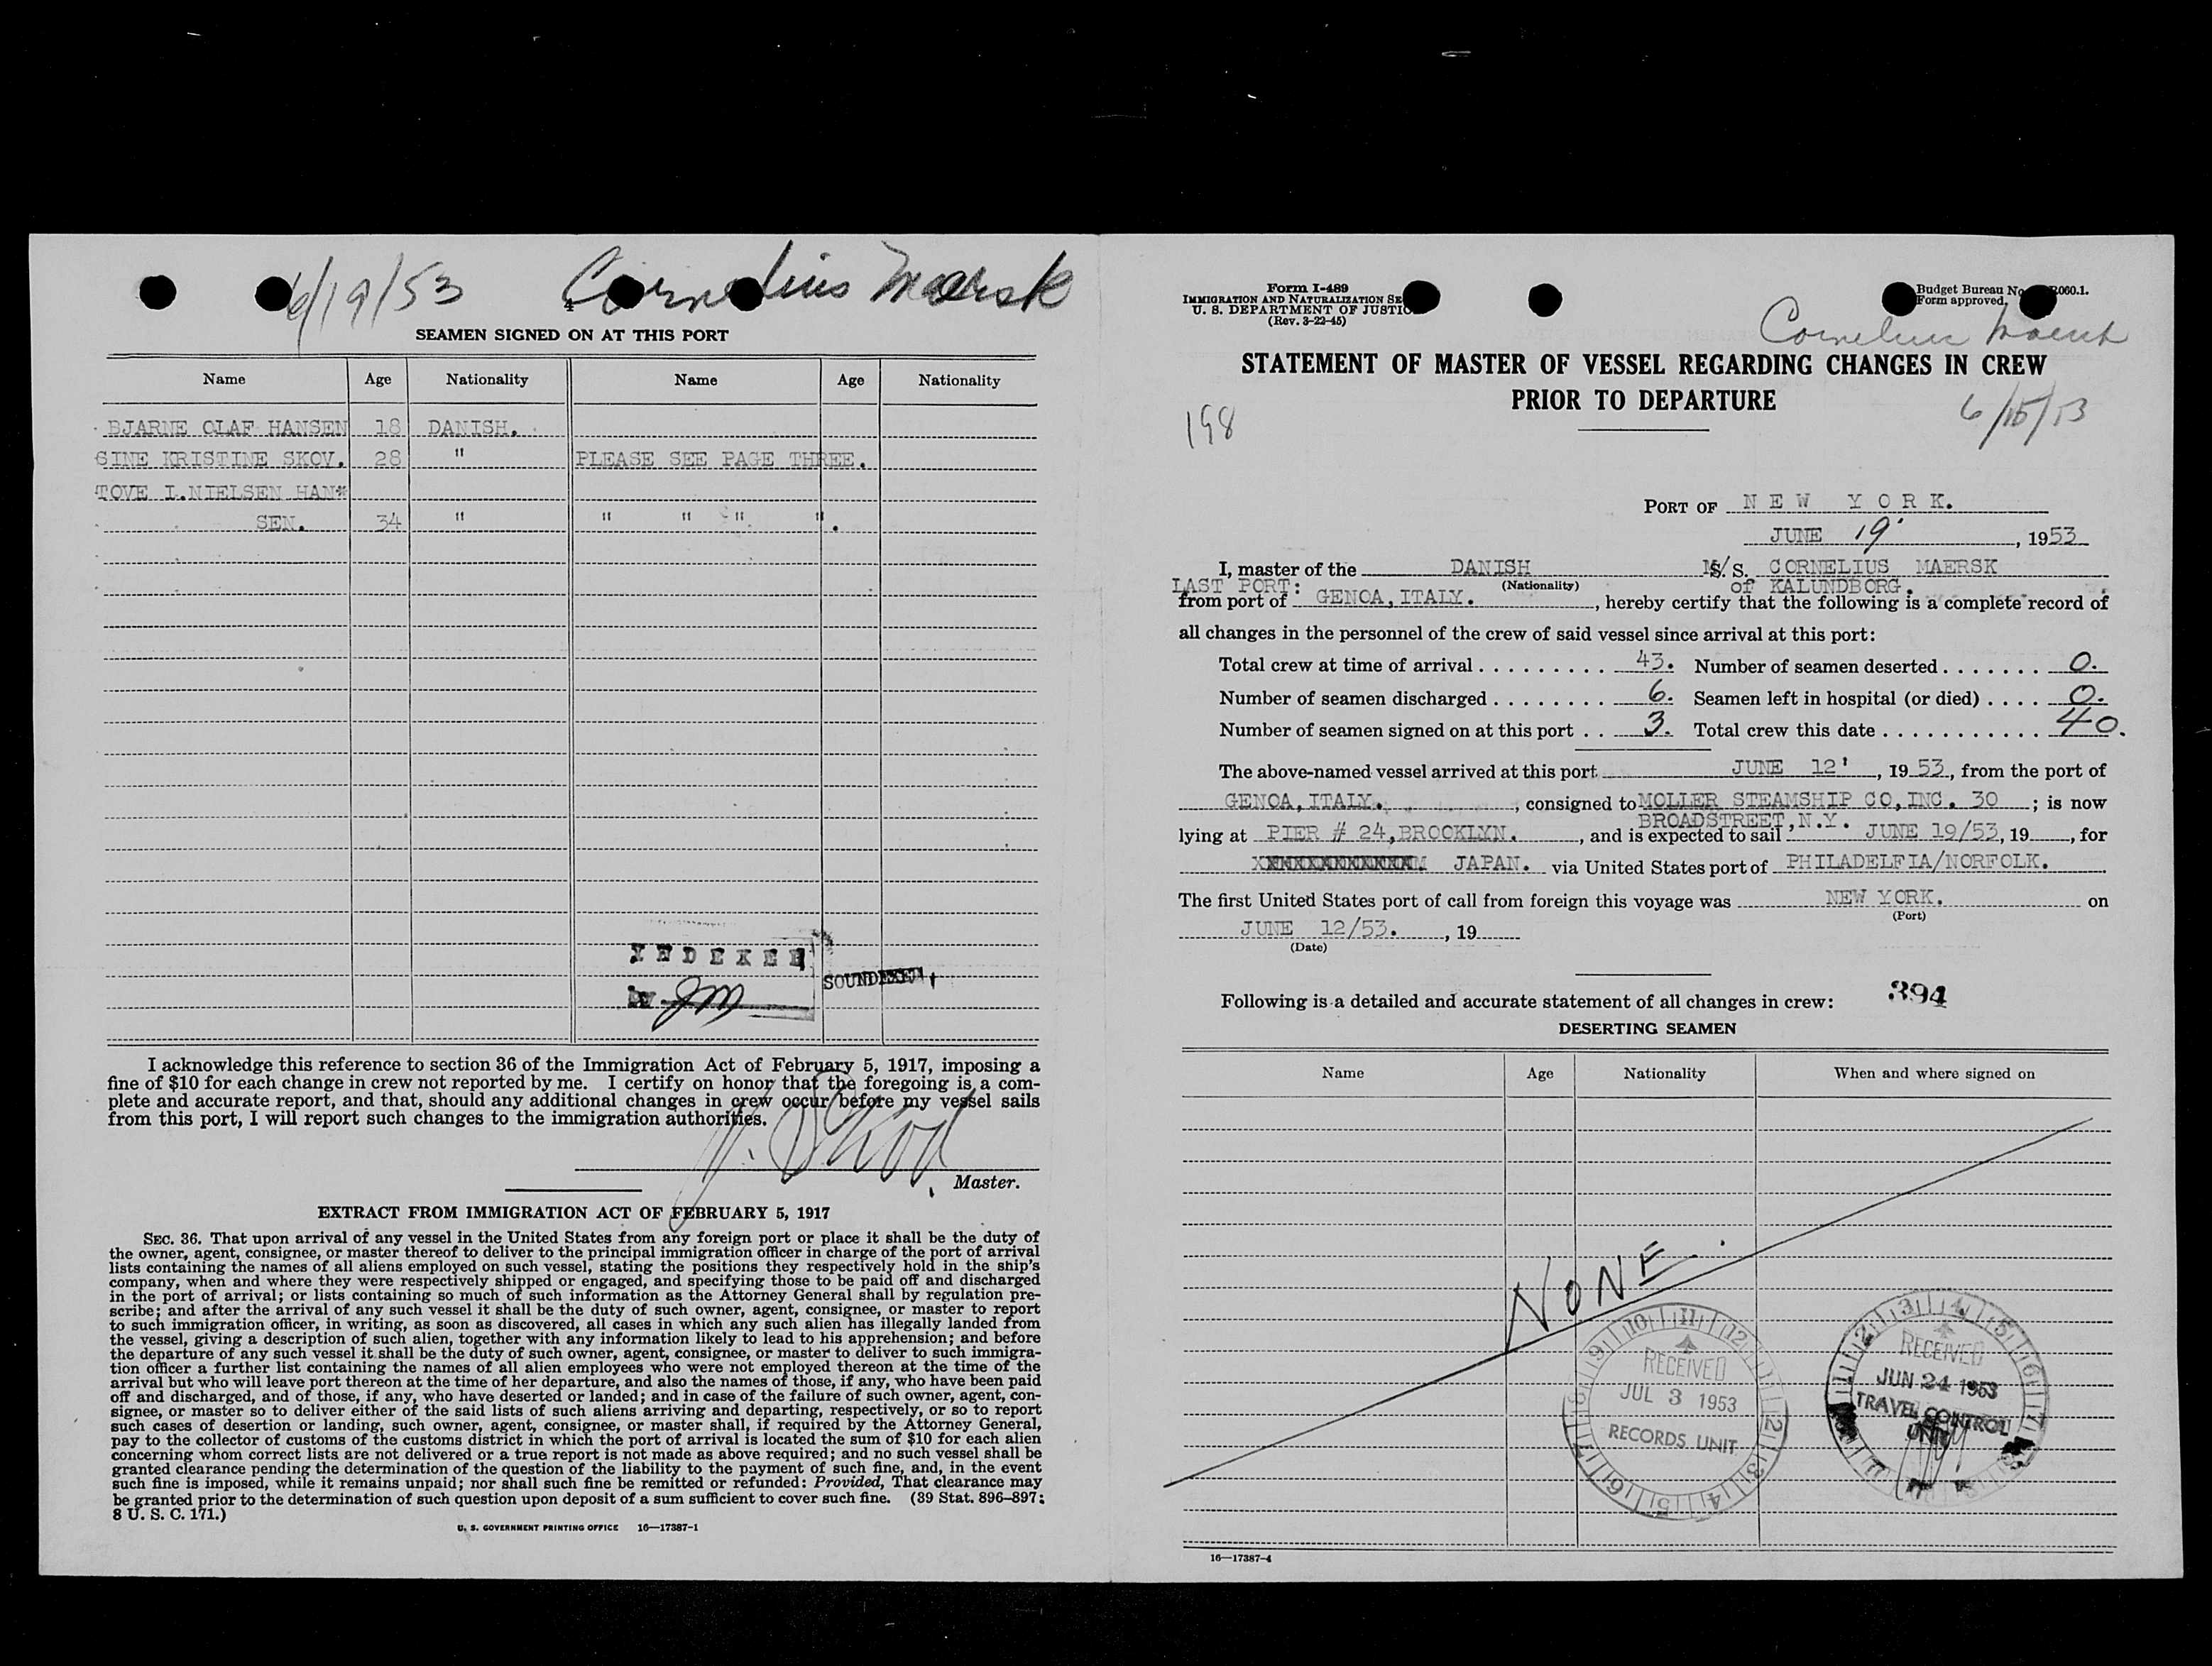 6/19/53 Cornelius Maersk
4
SEAMEN SIGNED ON AT THIS PORT
Name Age Nationality Name Age Nationality
BJARNE OLAF HANSEN 18 DANISH.
SINE KRISTINE SKOV. 28 " PLEASE SEE PAGE THREE.
TOVE I.NIELSEN HAN*
SEN. 34 " " " " ".
INDEXED
by JM
SOUNDEXED
I acknowledge this reference to section 36 of the Immigration Act of February 5, 1917, imposing a
fine of $10 for each change in crew not reported by me. I certify on honor that the foregoing is a com-
plete and accurate report, and that, should any additional changes in crew occur before my vessel sails
from this port, I will report such changes to the immigration authorities.
Master.
EXTRACT FROM IMMIGRATION ACT OF FEBRUARY 5, 1917
SEC. 36. That upon arrival of any vessel in the United States from any foreign port or place it shall be the duty of
the owner, agent, consignee, or master thereof to deliver to the principal immigration officer in charge of the port of arrival
lists containing the names of all aliens employed on such vessel, stating the positions they respectively hold in the ship's
company, when and where they were respectively shipped or engaged, and specifying those to be paid off and discharged
in the port of arrival; or lists containing so much of such information as the Attorney General shall by regulation pre-
scribe; and after the arrival of any such vessel it shall be the duty of such owner, agent, consignee, or master to report
to such immigration officer, in writing, as soon as discovered, all cases in which any such alien has illegally landed from
the vessel, giving a description of such alien, together with any information likely to lead to his apprehension; and before
the departure of any such vessel it shall be the duty of such owner, agent, consignee, or master to deliver to such immigra-
tion officer a further list containing the names of all alien employees who were not employed thereon at the time of the
arrival but who will leave port thereon at the time of her departure, and also the names of those, if any, who have been paid
off and discharged, and of those, if any, who have deserted or landed; and in case of the failure of such owner, agent, con-
signee, or master so to deliver either of the said lists of such aliens arriving and departing, respectively, or so to report
such cases of desertion or landing, such owner, agent, consignee, or master shall, if required by the Attorney General,
pay to the collector of customs of the customs district in which the port of arrival is located the sum of $10 for each alien
concerning whom correct lists are not delivered or a true report is not made as above required; and no such vessel shall be
granted clearance pending the determination of the question of the liability to the payment of such fine, and, in the event
such fine is imposed, while it remains unpaid; nor shall such fine be remitted or refunded: Provided, That clearance may
be granted prior to the determination of such question upon deposit of a sum sufficient to cover such fine. (39 Stat. 896–897;
8 U. S. C. 171.)
U. S. GOVERNMENT PRINTING OFFICE 16—17387-1
Form I-489
IMMIGRATION AND NATURALIZATION SE
U. S. DEPARTMENT OF JUSTIC
(Rev. 3-22-45)
Budget Bureau No. 060.1.
Form approved.
Cornelius Maersk
STATEMENT OF MASTER OF VESSEL REGARDING CHANGES IN CREW
PRIOR TO DEPARTURE
198
6/15/53
PORT OF NEW YORK.
JUNE 19', 1953
I, master of the DANISH M/S. S. CORNELIUS MAERSK
LAST PORT: (Nationality) of KALUNDBORG.
from port of GENOA, ITALY., hereby certify that the following is a complete record of
all changes in the personnel of the crew of said vessel since arrival at this port:
Total crew at time of arrival 43. Number of seamen deserted 0.
Number of seamen discharged 6. Seamen left in hospital (or died) 0.
Number of seamen signed on at this port 3. Total crew this date 40.
The above-named vessel arrived at this port JUNE 12', 1953, from the port of
GENOA, ITALY., consigned to MOLLER STEAMSHIP CO, INC. 30; is now
BROADSTREET, N.Y.
lying at PIER # 24, BROOKLYN., and is expected to sail JUNE 19/53, 19, for
JAPAN. via United States port of PHILADELFIA/NORFOLK.
The first United States port of call from foreign this voyage was NEW YORK. on
(Port)
JUNE 12/53., 19
(Date)
Following is a detailed and accurate statement of all changes in crew: 394
DESERTING SEAMEN
Name Age Nationality When and where signed on
NONE.
RECEIVED
JUL 3 1953
RECORDS UNIT
RECEIVED
JUN 24 1953
TRAVEL CONTROL
UNIT
16—17387-4